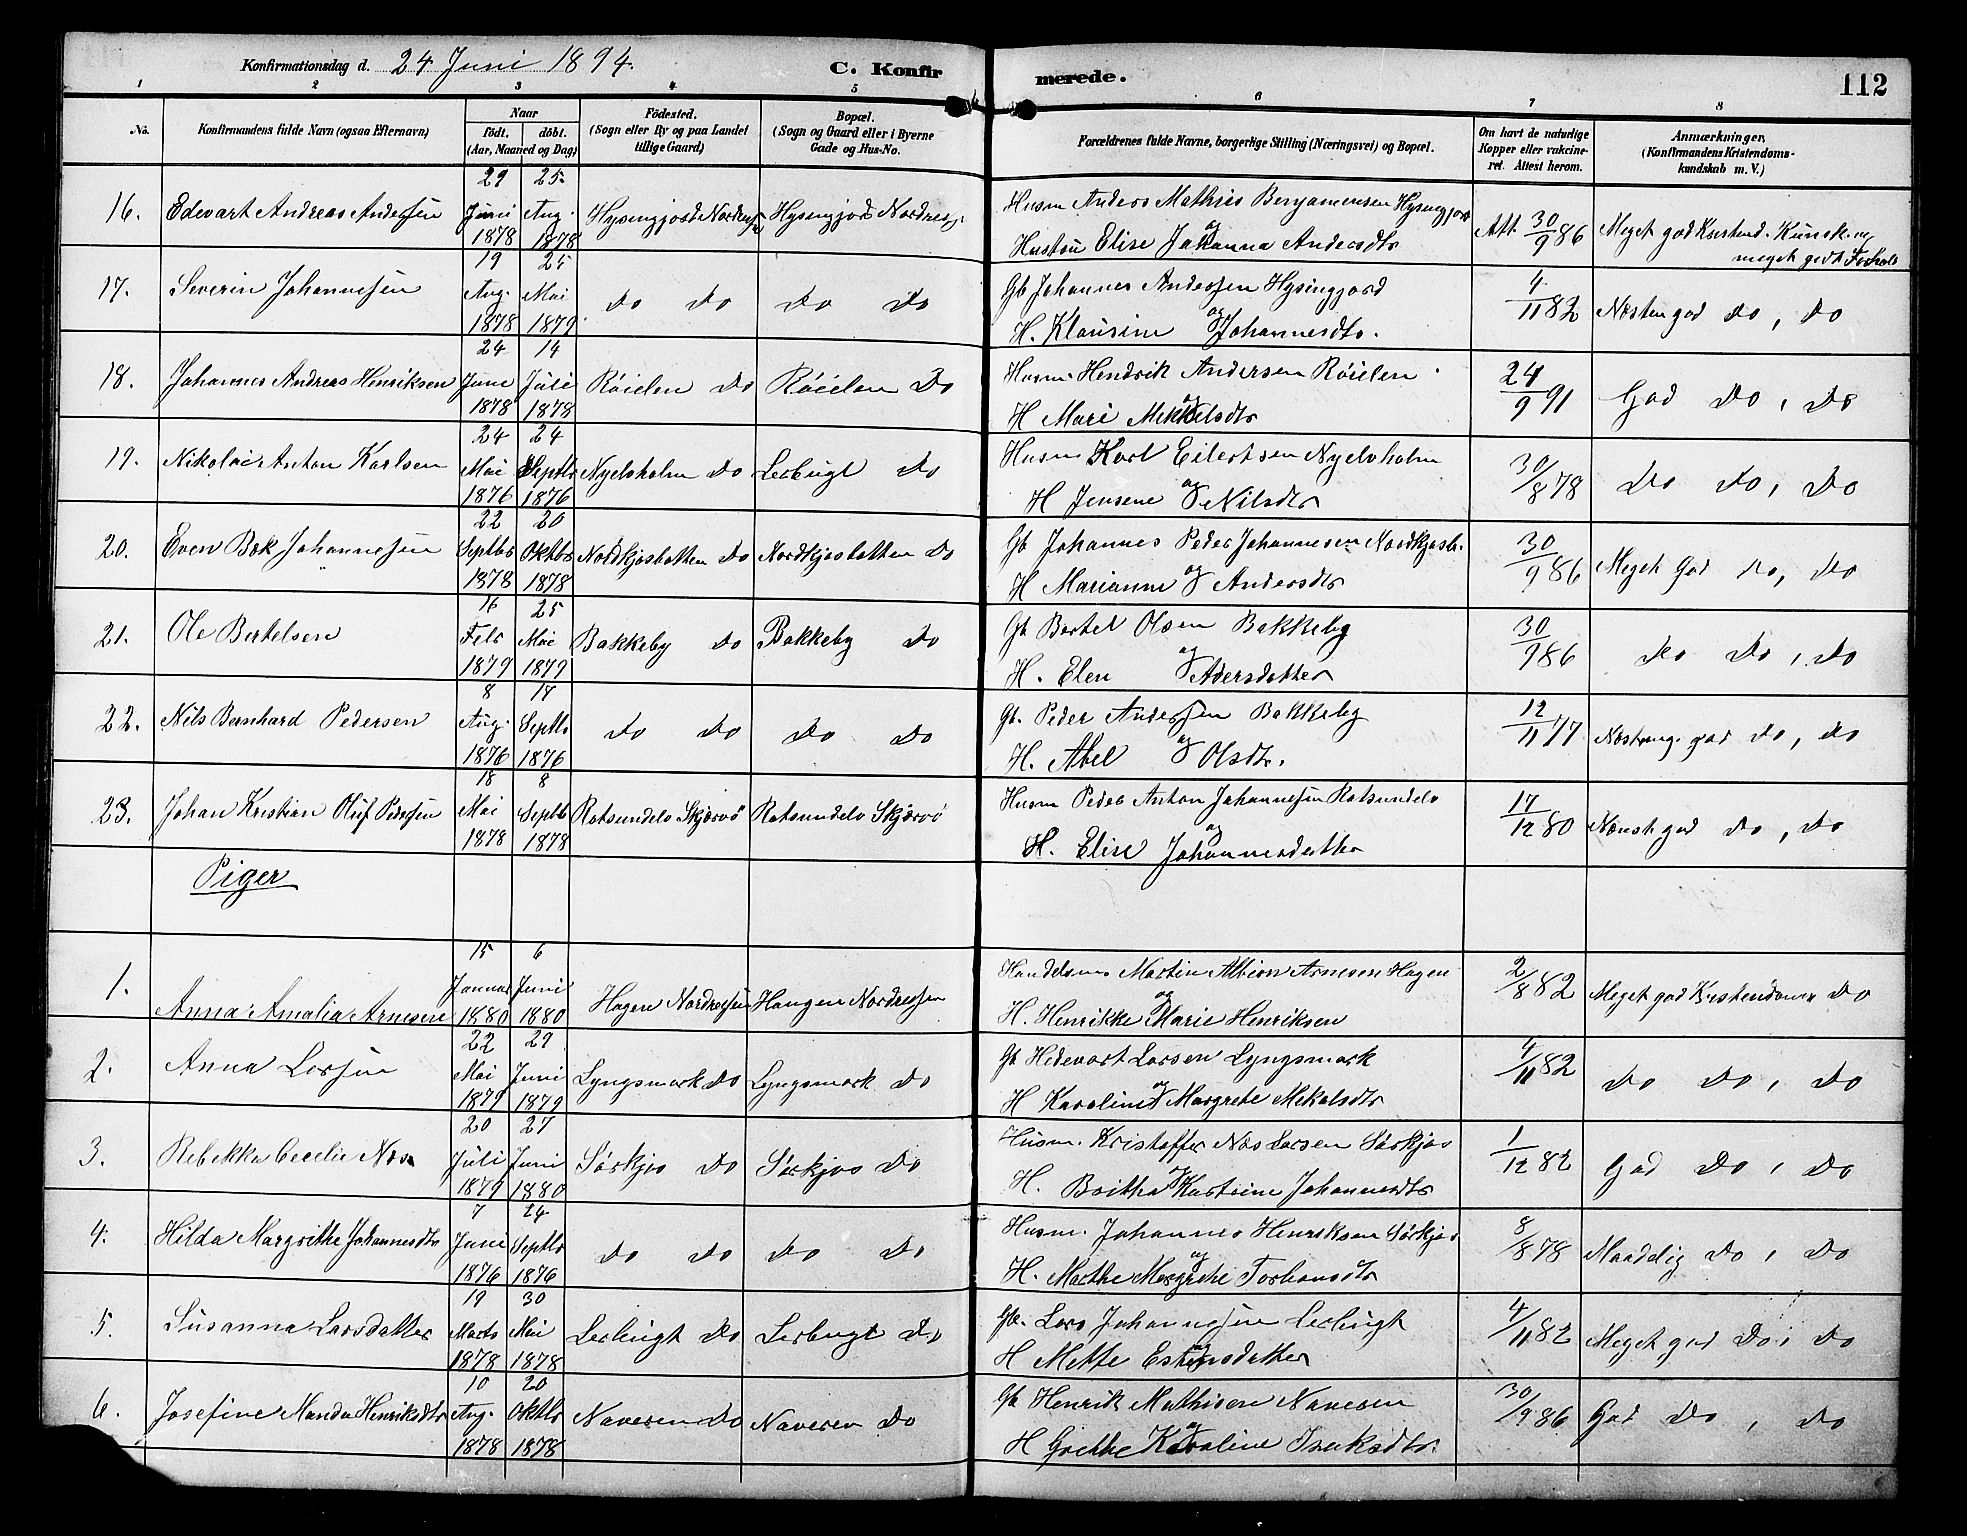 Konfirmationsdag d. 24 Juni 1894. C. Konfirmerede. 112
1 2 3 4 5 6 7 8
No. Konfirmandens fulde Navn (ogsaa Efternavn) Naar født. døbt. (Aar, Maaned og Dag) Fødested. (Sogn eller By og paa Landet tillige Gaard) Bopæl. (Sogn og Gaard eller i Byerne Gade og Hus-No. Forældrenes fulde Navne, borgerlige Stilling (Næringsvei) og Bopæl. Om havt de naturlige Kopper eller vakcineret. Attest herom. Anmærkninger, (Konfirmandens Kristendomskundskab m. V.)
16. Edevart Andreas Andersen 29 Juni 1878 25 Aug. 1878 Hysingjord Hysingjord Nordreis. Husm Anders Mathis Benjamensen Hysingjord og Hustru Elise Johanna Andersdtr Att. 30/9 86 Meget god Kristend. Kunsk. og meget godt Forhold
17. Severin Johannesen 19 Aug. 1878 25 Mai 1879 Do Do Do Do Gb Johannes Andersen Hysingjord og H. Klausine Johannesdtr. 4/11 82 Næsten god Do, Do
18. Johannes Andreas Henriksen 24 June 1878 14 Juli 1878 Röielen Do Röielen Do Husm. Hendrik Andersen Röielen og H Mari Mikkelsdtr 24/9 91 God Do, Do
19. Nikolai Anton Karlsen 24 Mai 1876 24 Septbr 1876 Nyelvholm Do Lerbugt Do Husm Karl Eilertsen Nyelvholm og H Jensene Nilsdtr 30/8 78 Do Do, Do
20. Even Bek Johannesen 22 Septbr 1878 20 Oktbr 1878 Nordkjosbotten Do Nordkjosbotten Do Gb Johannes Peder Johannesen Nordkjosb. og H Marianne Andersdtr 30/9 86 Meget God Do, Do
21. Ole Bertelsen 16 Feb 1879 25 Mai 1879 Bakkeby Do Bakkeby Do Gb Bertel Olsen Bakkeby og H. Elen Adersdatter 30/9 86 Do Do, Do
22. Nils Bernhard Pedersen 8 Aug. 1876 17 Septb 1876 Do Do Do Do Gb. Peder Andersen Bakkeby og H. Abel Olsdtr. 12/11 77 god Do, Do
23. Johan Kristian Oluf Pedersen 18 Mai 1878 8 Septb 1878 Rotsundelv Skjærvö Rotsundelv Skjærvö Husm Peder Anton Johannesen Rotsundelv og H. Elise Johannesdatter 17/12 80 god Do, Do
Piger
1. Anna Amalia Arnesen 15 Januar 1880 6 Juni 1880 Hagen Nordreisen Haugen Nordreisen Handelsm Martin Albion Arnesen Hagen og H. Henrikke Marie Henriksen 2/8 82 Meget god Kristendoms Do
2. Anna Larsen 22 Mai 1879 29 Juni 1879 Lyngsmark Do Lyngsmark Do Gb Hedevart Larsen Lyngsmark og H Karoline Margrete Mekalsdtr 4/11 82 Do Do, Do
3. Rebekka Cecelie Næs 20 Juli 1879 27 Juni 1880 Sörkjos Do Sörkjos Do Husm. Kristoffer Næs Larsen Sörkjos og H. Britha Katrine Johannesdtr 1/12 82 God Do, Do
4. Hilda Margrithe Johannesdtr 7 Juni 1876 24 Septbr 1876 Do Do Do Do Husm. Johannes Henriksen Sörkjos og H. Marthe Margrete Forhansdtr 8/8 78 Maadelig Do, Do
5. Susanna Larsdatter 19 Marts 1878 30 Mai 1878 Lerbugt Do Lerbugt Do Gb. Lars Johannesen Lerbugt og H Mette Estensdatter 4/11 82 Meget god Do, Do
6. Josefine Manda Henriksdtr 10 Aug. 1878 20 Oktbr 1878 Naveren Do Naveren Do Gb Henrik Mathisen Naveren og H Grethe Karoline Iseksdtr. 30/9 86 God Do, Do